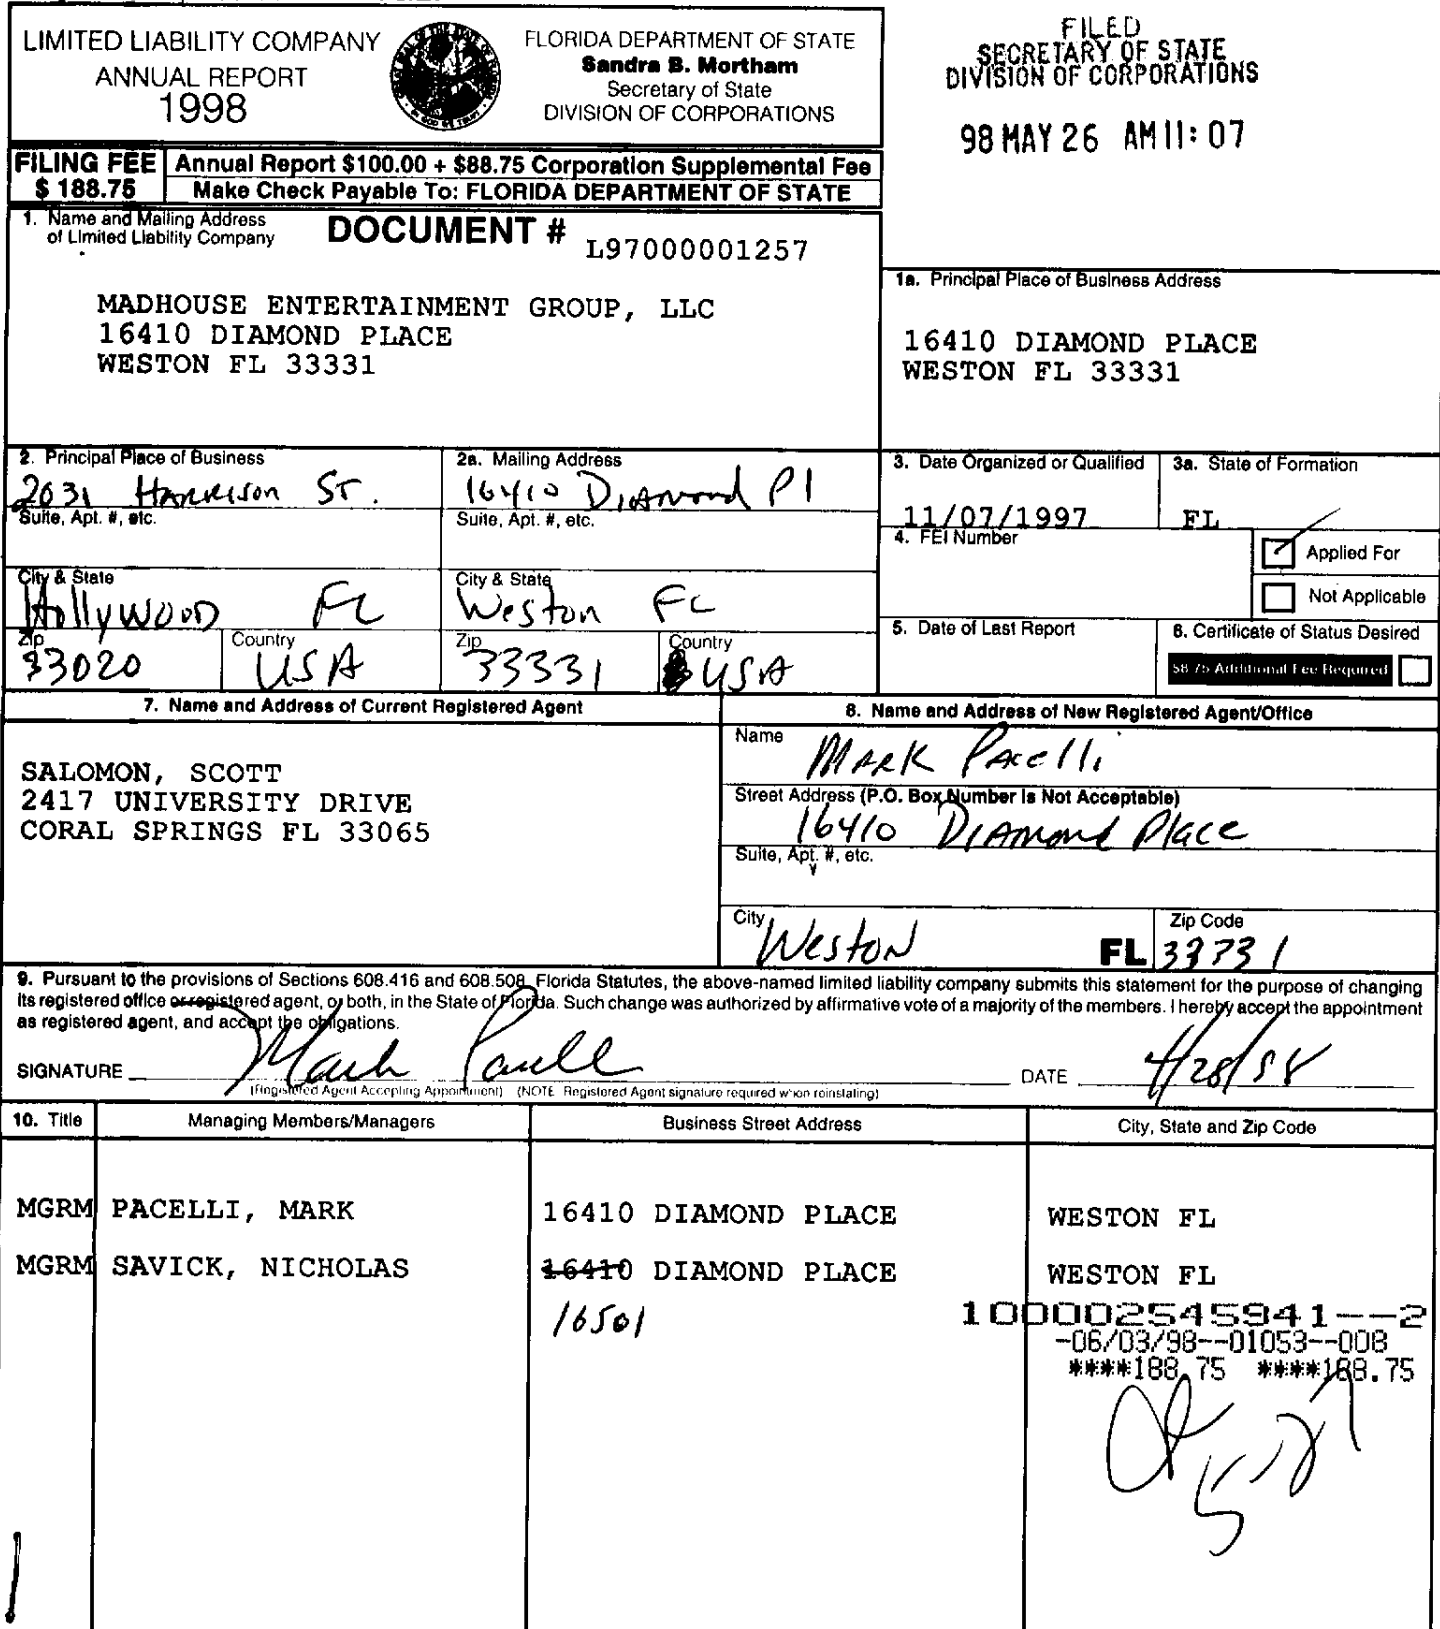 LIMITED LIABILITY COMPANY
ANNUAL REPORT
1998
FLORIDA DEPARTMENT OF STATE
Sandra B. Mortham
Secretary of State
DIVISION OF CORPORATIONS
FILED
SECRETARY OF STATE
DIVISION OF CORPORATIONS
98 MAY 26 AM 11:07
FILING FEE
$ 188.75
Annual Report $100.00 + $88.75 Corporation Supplemental Fee
Make Check Payable To: FLORIDA DEPARTMENT OF STATE
1. Name and Mailing Address
of Limited Liability Company
DOCUMENT #
L97000001257
MADHOUSE ENTERTAINMENT GROUP, LLC
16410 DIAMOND PLACE
WESTON FL 33331
1a. Principal Place of Business Address
16410 DIAMOND PLACE
WESTON FL 33331
2. Principal Place of Business
2031 Harrison ST.
Suite, Apt. #, etc.
City & State
Hollywood FL
Zip
33020
Country
USA
2a. Mailing Address
16410 Diamond Pl
Suite, Apt. #, etc.
City & State
Weston FL
Zip
33331
Country
USA
3. Date Organized or Qualified
11/07/1997
3a. State of Formation
FL
4. FEI Number
Applied For
Not Applicable
5. Date of Last Report
6. Certificate of Status Desired
$8.75 Additional Fee Required
7. Name and Address of Current Registered Agent
SALOMON, SCOTT
2417 UNIVERSITY DRIVE
CORAL SPRINGS FL 33065
8. Name and Address of New Registered Agent/Office
Name
Mark Pacelli
Street Address (P.O. Box Number Is Not Acceptable)
16410 Diamond Place
Suite, Apt. #, etc.
City
Weston
FL
Zip Code
33331
9. Pursuant to the provisions of Sections 608.416 and 608.508, Florida Statutes, the above-named limited liability company submits this statement for the purpose of changing
its registered office or registered agent, or both, in the State of Florida. Such change was authorized by affirmative vote of a majority of the members. I hereby accept the appointment
as registered agent, and accept the obligations.
SIGNATURE Mark Pacelli
DATE 4/28/98
(Registered Agent Accepting Appointment) (NOTE: Registered Agent signature required when reinstating)
10. Title
Managing Members/Managers
Business Street Address
City, State and Zip Code
MGRM PACELLI, MARK 16410 DIAMOND PLACE WESTON FL
MGRM SAVICK, NICHOLAS 16410 DIAMOND PLACE WESTON FL
16501
100002545941--2
-06/03/98--01053--008
****188.75 ****188.75